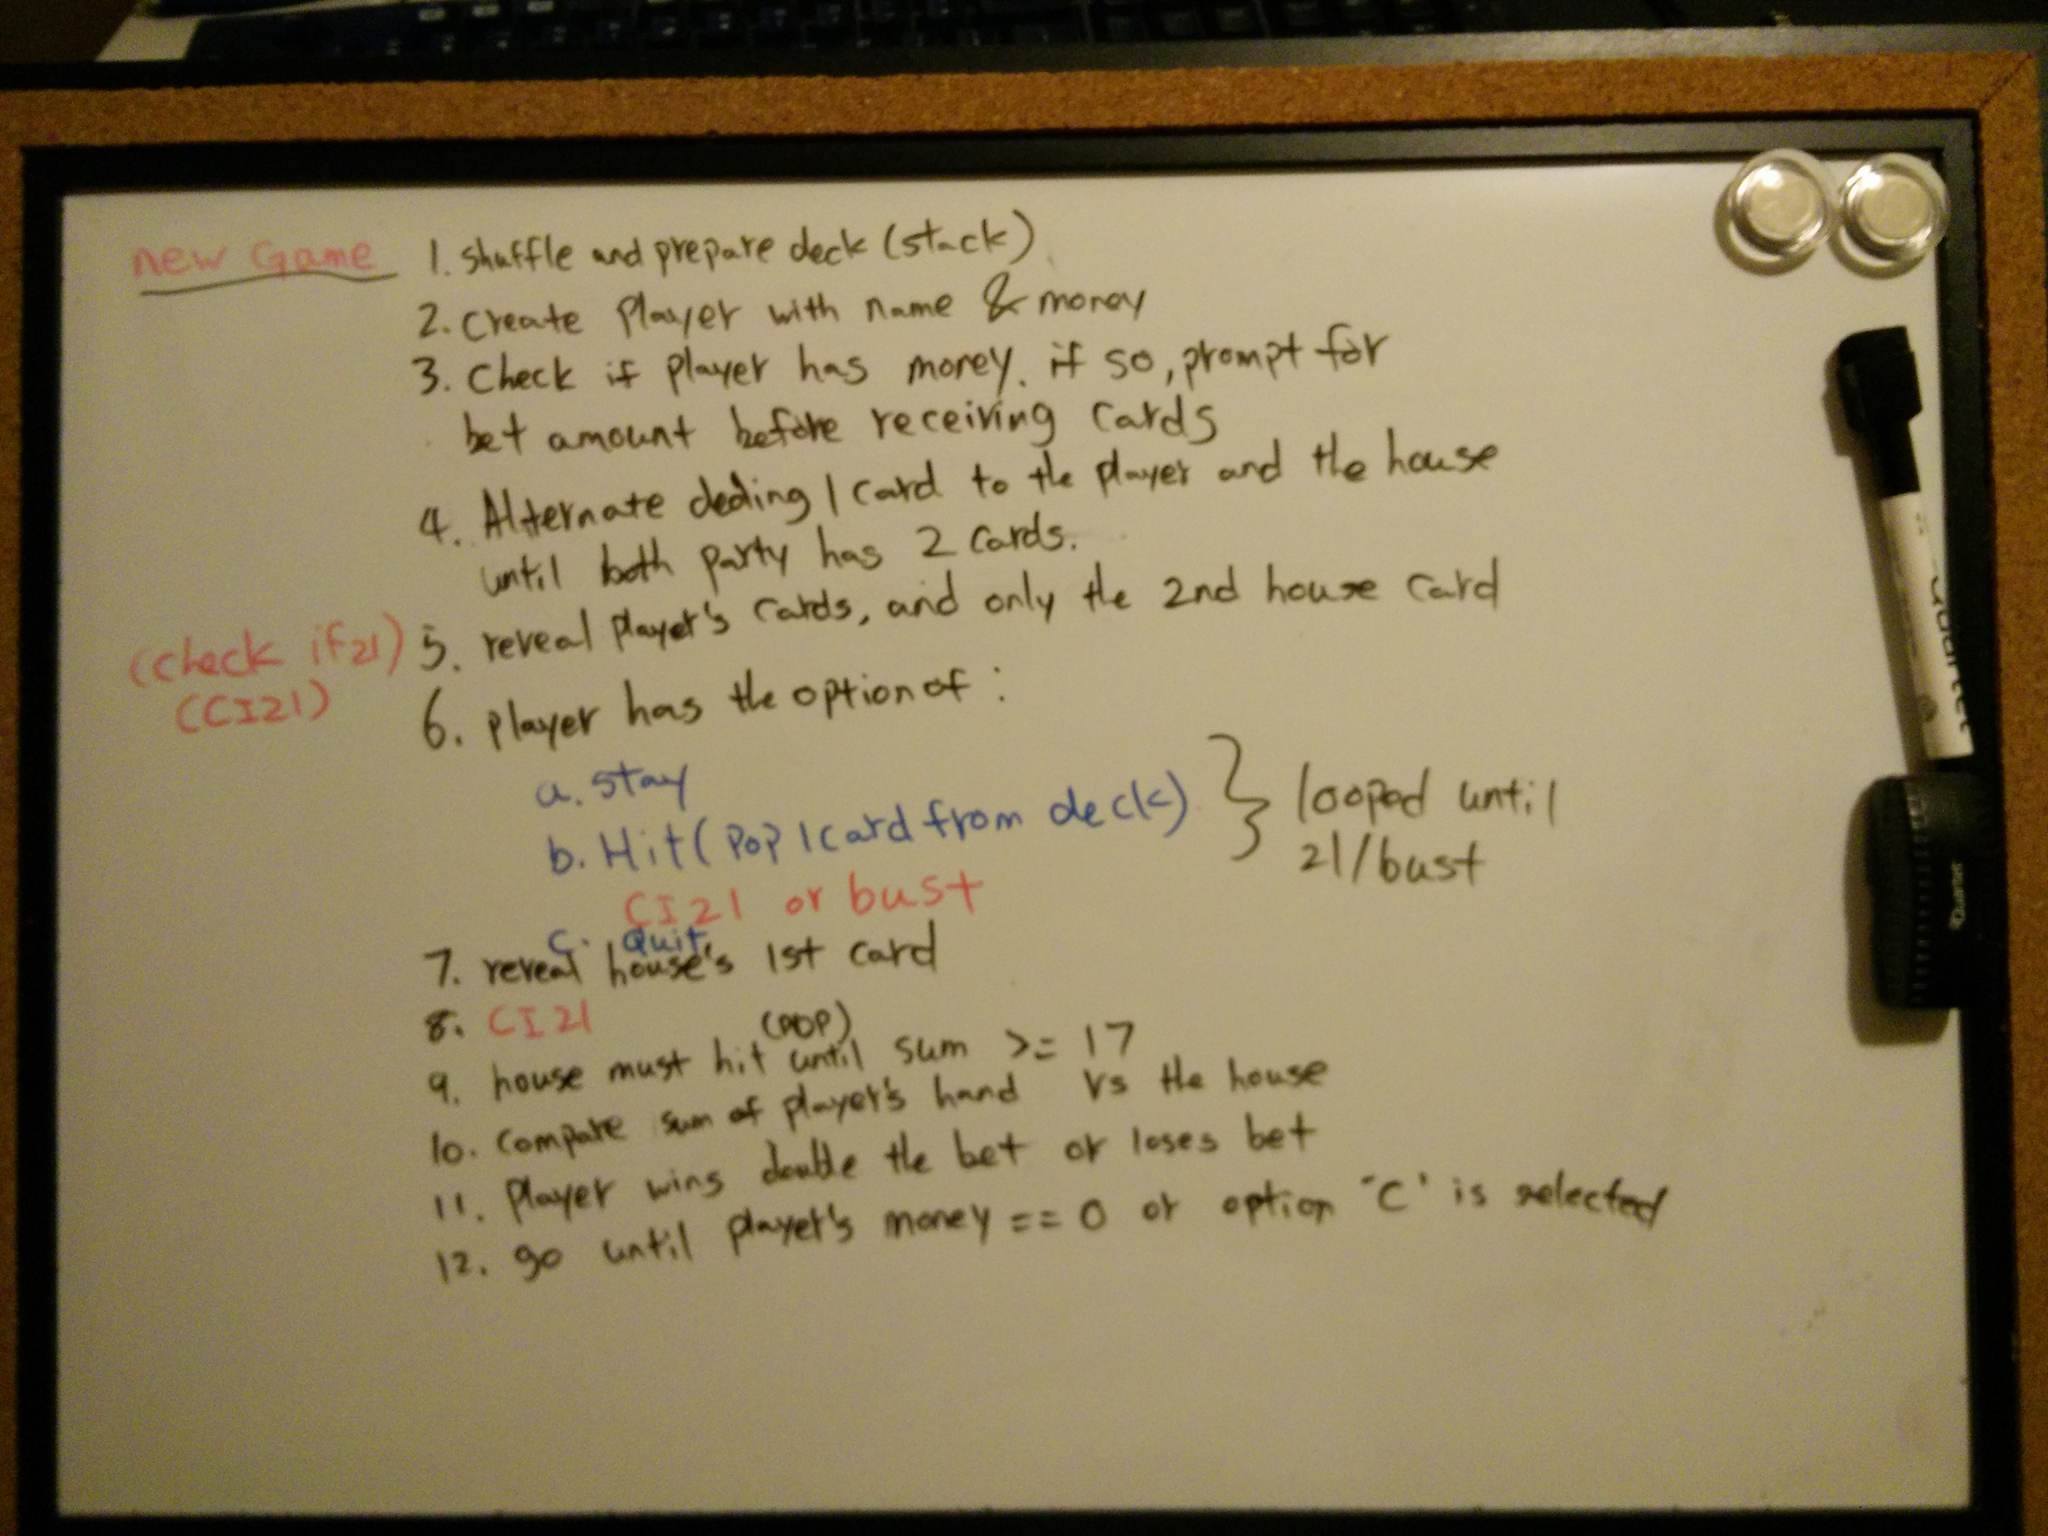 new Game 1. shuffle and prepare deck (stack)
2. Create Player with name & money
3. Check if player has money. if so, prompt for
bet amount before receiving cards
4. Alternate dealing 1 card to the player and the house
until both party has 2 cards.
(check if 21) 5. reveal player's cards, and only the 2nd house card
(CI21)
6. player has the option of :
a. stay
b. Hit (pop 1 card from deck) } looped until
21/bust
CI21 or bust
c. Quit
7. reveal house's 1st card
8. CI21
(POP)
9. house must hit until sum >= 17
10. Compare sum of player's hand vs the house
11. Player wins double the bet or loses bet
12. go until player's money == 0 or option "C' is selected
Quartet
Quartet